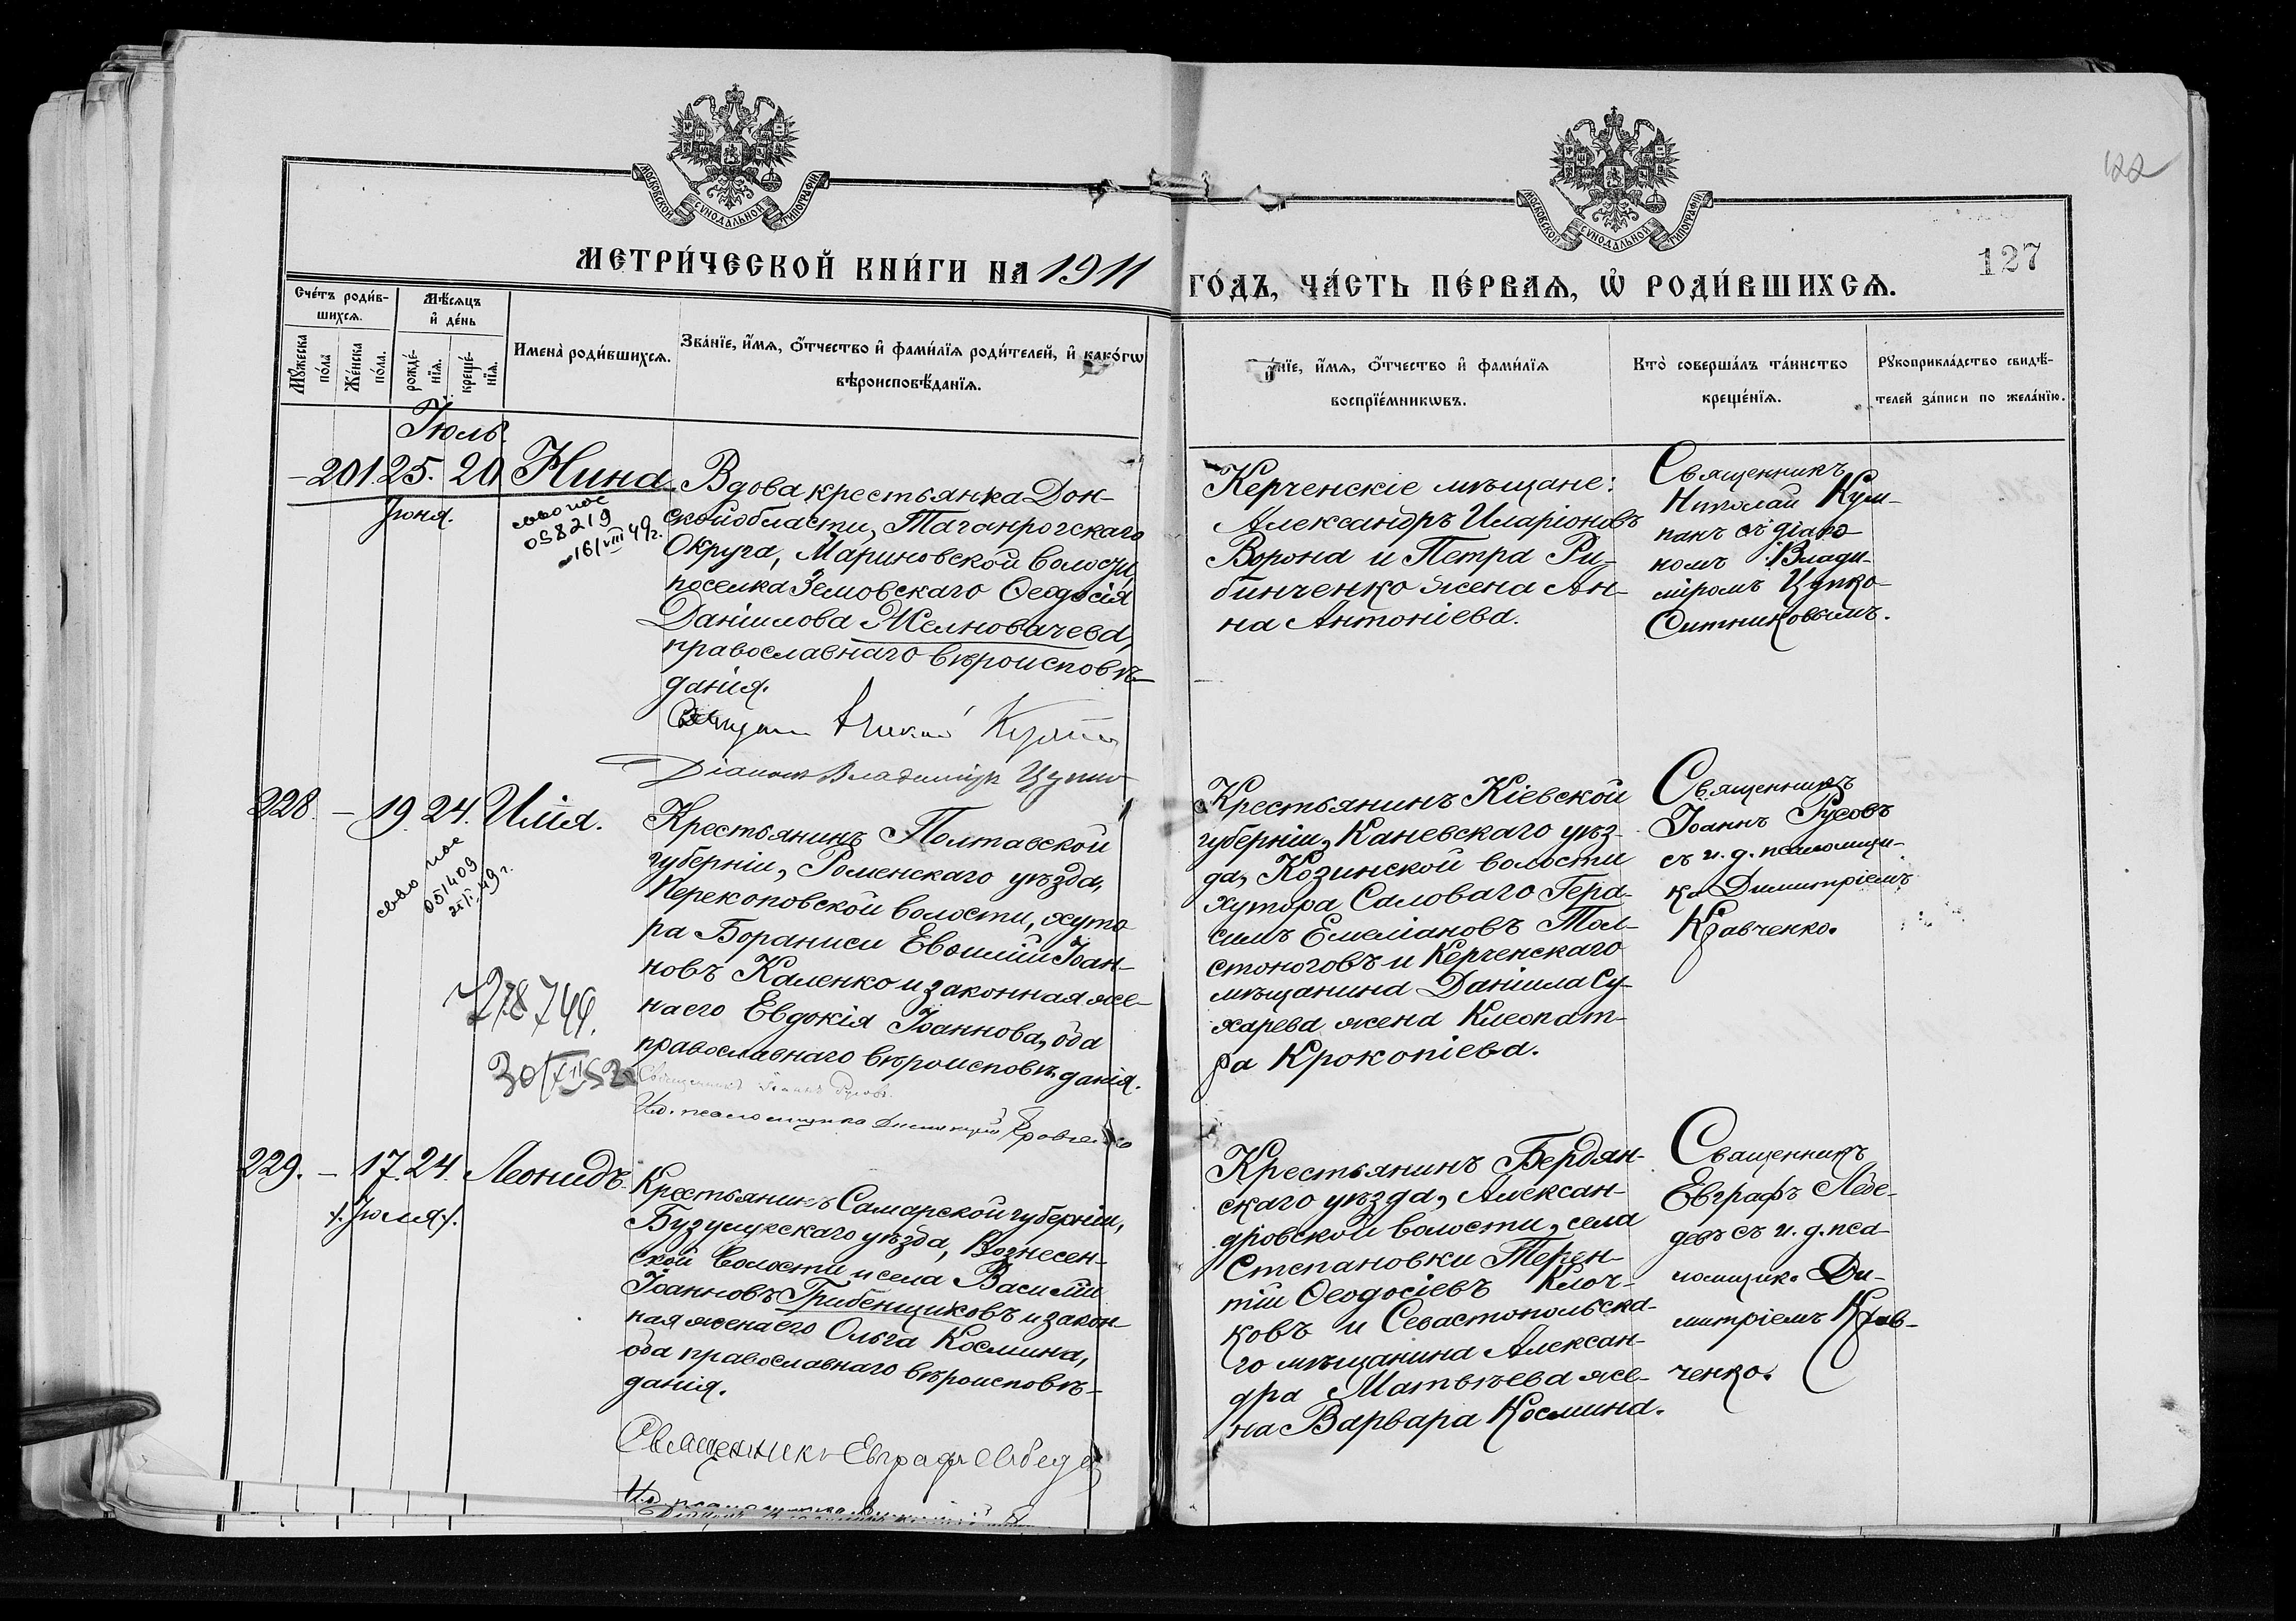 122
127
МОСКОВСКОЙ СѴНОДАЛЬНОЙ ТИПОГРАФІИ
МОСКОВСКОЙ СѴНОДАЛЬНОЙ ТИПОГРАФІИ
МЕТРИ́ЧЕСКОЙ КНИ́ГИ НА 1911 ГО́ДЪ, ЧА́СТЬ ПЕ́РВАѦ, Ѡ҆ РОДИ́ВШИХСѦ.
Сче́тъ роди́в-
шихсѧ.
Мꙋ́жеска
по́ла
Же́нска
по́ла.
Мѣ́сѧцъ
и҆ де́нь
рожде́-
нїѧ.
креще́-
нїѧ.
Имена̀ роди́вшихсѧ.
Зва́нїе, и҆́мѧ, ѻ҆́тчество и҆ фами́лїѧ роди́телей, и҆ како́гѡ
вѣроисповѣ́данїѧ.
нїе, и҆́мѧ, ѻ҆́тчество и҆ фами́лїѧ
воспрїе́мникѡвъ.
Кто̀ соверша́лъ та́инство
креще́нїѧ.
Рꙋкоприкла́дство свидѣ́-
телей за́писи по жела́нїю.
Іюль.
– 201. 25. 20 Нина
Іюня.
058219
16/VIII 49г.
Вдова крестьянка Дон-
ской области, Таганрогскаго
Округа, Мариновской волости,
поселка Земовскаго Ѳеодосія
Даніилова Желновачева,
православнаго вѣроисповѣ-
данія.
Діаконъ Владиміръ Цупко
Керченскіе мѣщане:
Александръ Иларіоновъ
Ворона и Петра Ри-
бинченко жена Ан-
на Антоніева.
Священникъ
Николай Кум-
панъ съ діако-
номъ Влади-
міромъ Цупко-
Ситниковымъ.
228. – 19. 24. Илія.
051409
49г.
728746.
30/XII 52
Крестьянинъ Полтавской
губерніи, Роменскаго уѣзда,
Перекоповской волости, хуто-
ра Бораниси Евѳимій Іоан-
новъ Каленко и законная же-
на его Евдокія Іоаннова, оба
православнаго вѣроисповѣданія.
Священникъ Іоаннъ Русовъ.
И.д. псаломщика Димитрій Кравченко
Крестьянинъ Кіевской
губерніи, Каневскаго уѣз-
да, Козинской волости
хутора Саловаго Гера-
симъ Емеліановъ Тол-
стоноговъ и Керченскаго
мѣщанина Даніила Су-
харева жена Клеопат-
ра Прокопіева.
Священникъ
Іоаннъ Русовъ
съ и. д. псаломщи-
ка Димитріемъ
Кравченко.
229. – 17. 24. Леонидъ.
Іюля
Крестьянинъ Самарской губерніи,
Бузулукскаго уѣзда, Вознесен-
ской волости и села Василій
Іоанновъ Грибенщиковъ и закон-
ная жена его Ольга Космина,
оба православнаго вѣроисповѣ-
данія.
Священникъ Евграфъ Лебедев
И.д. псаломщика
Крестьянинъ Бердян-
скаго уѣзда, Алексан-
дровской волости, села
Степановки Терен-
тій Ѳеодосіевъ Клоч-
ковъ и Севастопольска-
го мѣщанина Алексан-
дра Матвѣева же-
на Варвара Космина.
Священникъ
Евграфъ Лебе-
девъ съ и. д. пса-
ломщика Ди-
митріемъ Крав-
ченко.